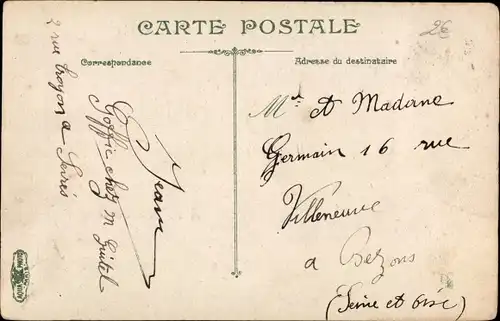 CARTE POSTALE
26
Correspondance
Adresse du destinataire
Jean
Goffic chez m Guitel
2 rue troyon a
Sevres
Mr et Madame
Germain 16 rue
Villeneuve
a Bezons
(Seine et Oise)